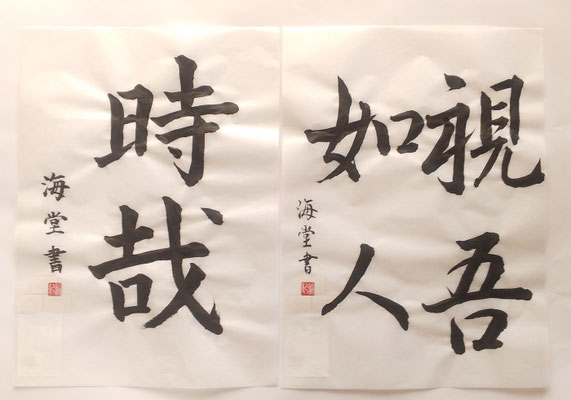 視吾
如人
海堂書
時哉
海堂書